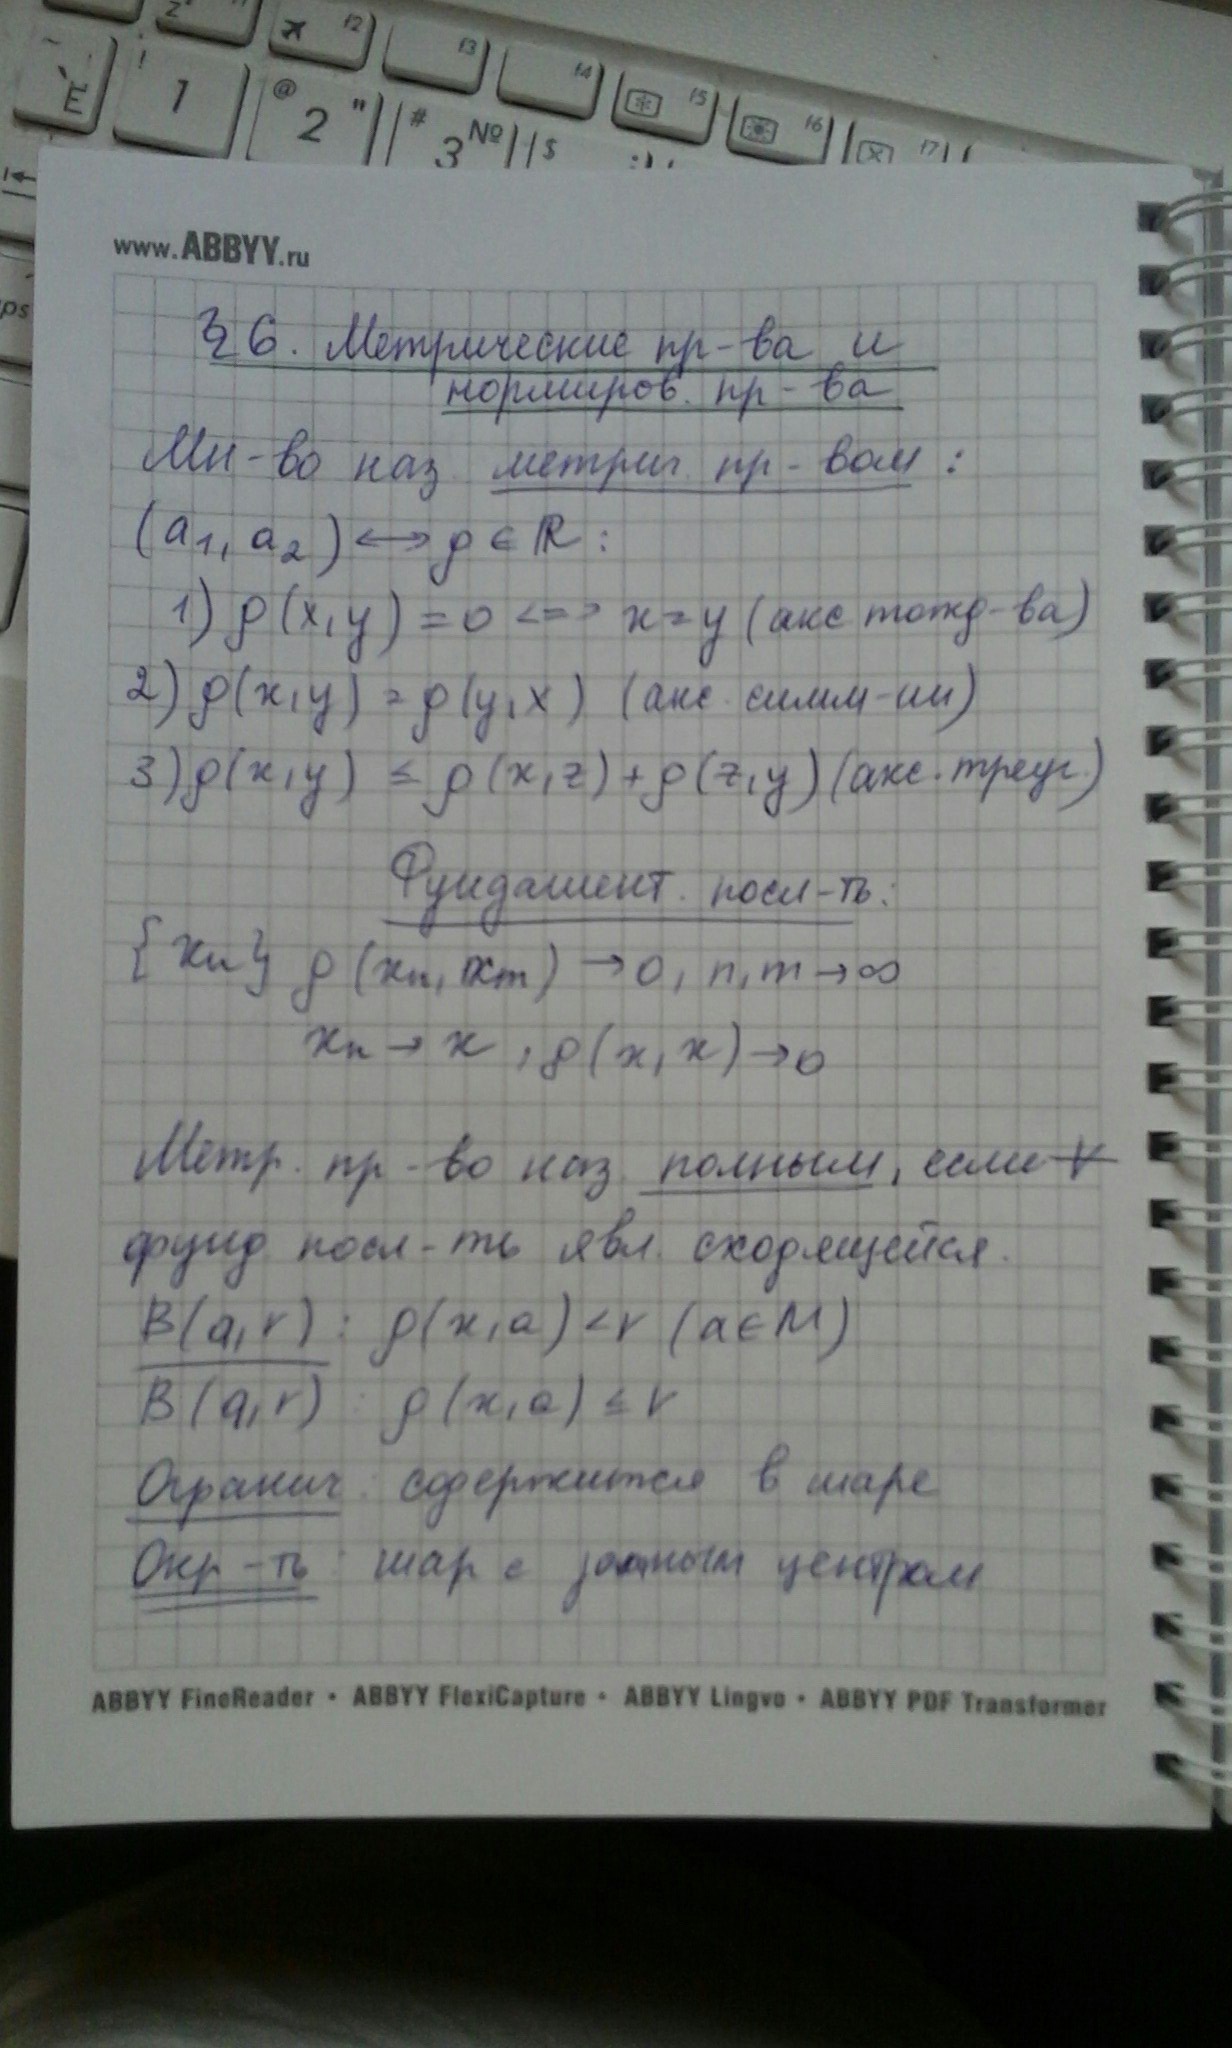 Ё
1 !
@ 2 "
# 3 №
$
f2
f3
f4
f5
f6
f7
www.ABBYY.ru
§6. Метрические пр-ва и
нормиров. пр-ва
Мн-во наз. метрич. пр-вом:
(a₁, a₂) ↔ ρ ∈ ℝ:
1) ρ(x,y) = 0 <=> x = y (акс тожд-ва)
2) ρ(x,y) = ρ(y,x) (акс. симм-ии)
3) ρ(x,y) ≤ ρ(x,z) + ρ(z,y) (акс. треуг.)
Фундамент. посл-ть:
{xₙ} ρ(xₙ, xₘ) → 0, n, m → ∞
xₙ → x, ρ(x, x) → 0
Метр. пр-во наз. полным, если ∀
фунд. посл-ть явл. сходящейся.
B(a,r): ρ(x,a) < r (a ∈ M)
B(a,r): ρ(x,a) ≤ r
Огранич: содержится в шаре
Окр-ть: шар с центром
ABBYY FineReader • ABBYY FlexiCapture • ABBYY Lingvo • ABBYY PDF Transformer